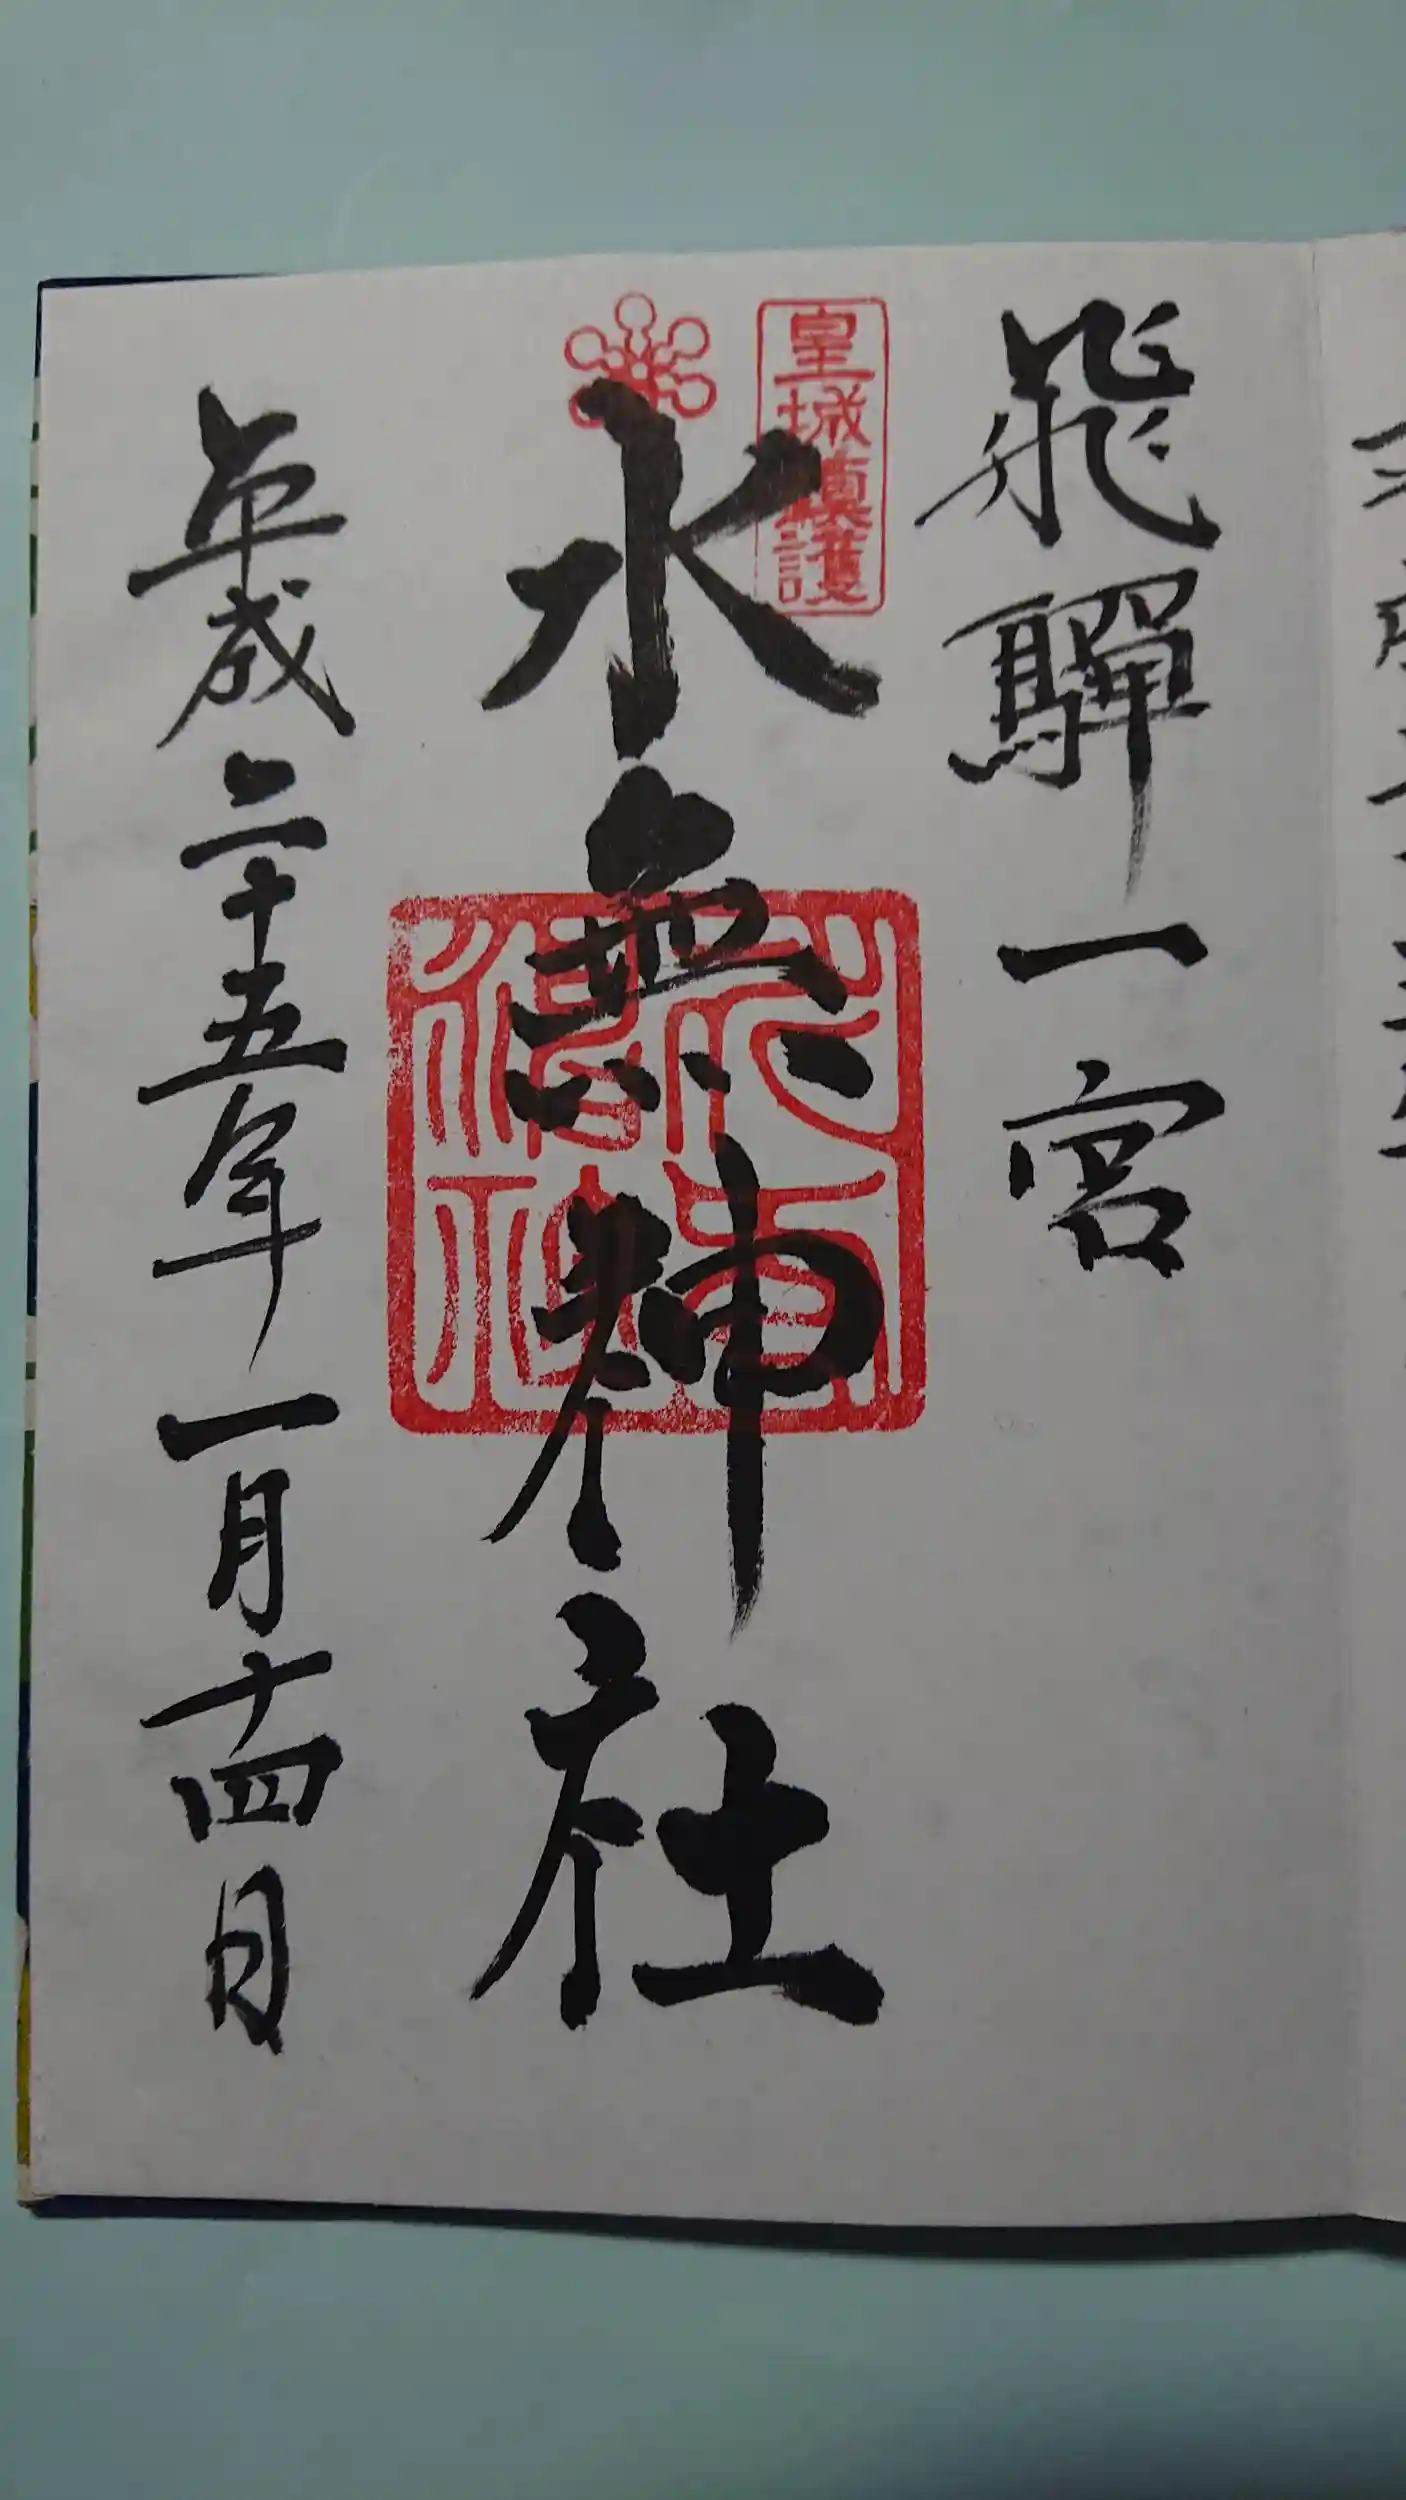 飛驒一宮
皇城鎮護
水無神社
平成二十五年一月十四日